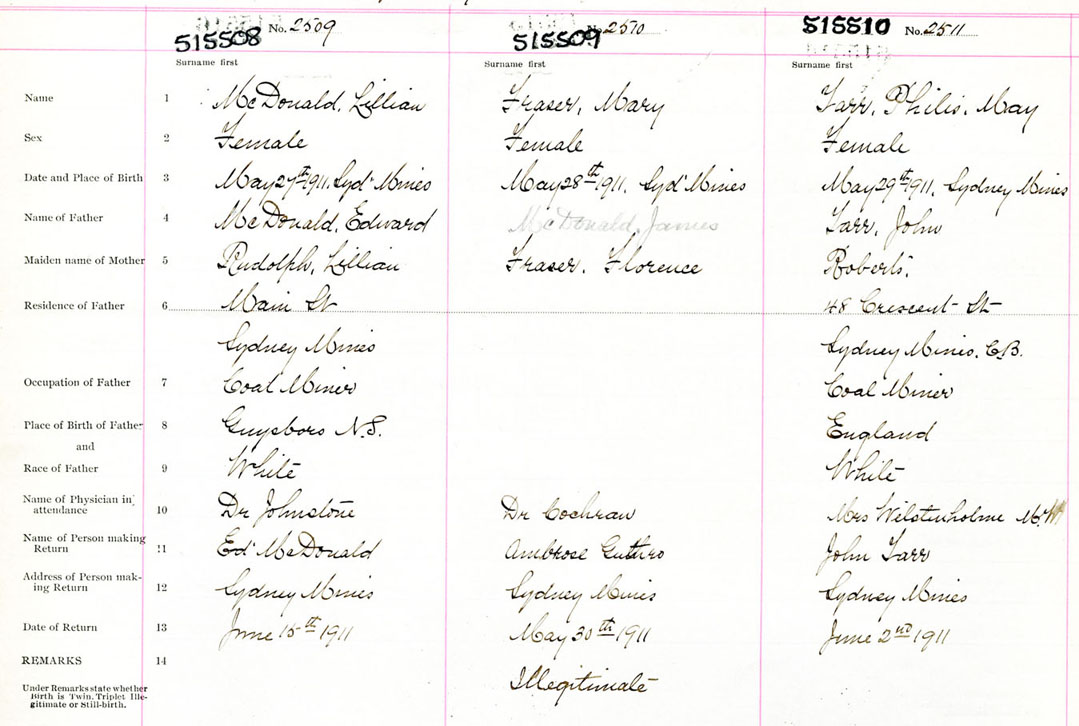 515508 No. 2509 515509 No. 2510 515510 No. 2511
Surname first Surname first Surname first
Name 1 McDonald, Lillian Fraser, Mary Tarr, Philis, May
Sex 2 Female Female Female
Date and Place of Birth 3 May 27th 1911, Syd Mines May 28th 1911, Syd Mines May 29th 1911, Sydney Mines
Name of Father 4 McDonald, Edward McDonald, James Tarr, John
Maiden name of Mother 5 Rudolph, Lillian Fraser, Florence Roberts,
Residence of Father 6 Main St 48 Crescent St
Sydney Mines Sydney Mines, C.B.
Occupation of Father 7 Coal Miner Coal Miner
Place of Birth of Father 8 Guysboro N.S. England
and
Race of Father 9 White White
Name of Physician in
attendance 10 Dr Johnstone Dr Cochran Mrs Wilstenholme
Name of Person making
Return 11 Ed McDonald Ambrose Guthro John Tarr
Address of Person mak-
ing Return 12 Sydney Mines Sydney Mines Sydney Mines
Date of Return 13 June 15th 1911 May 30th 1911 June 2nd 1911
REMARKS 14 Illegitimate
Under Remarks state whether
Birth is Twin, Triplet Ille-
gitimate or Still-birth.